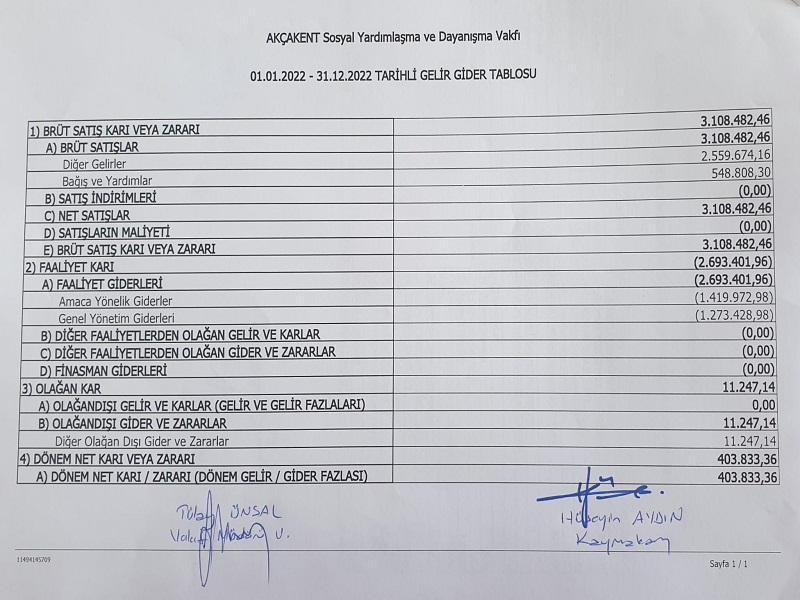 AKÇAKENT Sosyal Yardımlaşma ve Dayanışma Vakfı
01.01.2022 - 31.12.2022 TARİHLİ GELİR GİDER TABLOSU
1) BRÜT SATIŞ KARI VEYA ZARARI 3.108.482,46
A) BRÜT SATIŞLAR 3.108.482,46
Diğer Gelirler 2.559.674,16
Bağış ve Yardımlar 548.808,30
B) SATIŞ İNDİRİMLERİ (0,00)
C) NET SATIŞLAR 3.108.482,46
D) SATIŞLARIN MALİYETİ (0,00)
E) BRÜT SATIŞ KARI VEYA ZARARI 3.108.482,46
2) FAALİYET KARI (2.693.401,96)
A) FAALİYET GİDERLERİ (2.693.401,96)
Amaca Yönelik Giderler (1.419.972,98)
Genel Yönetim Giderleri (1.273.428,98)
B) DİĞER FAALİYETLERDEN OLAĞAN GELİR VE KARLAR (0,00)
C) DİĞER FAALİYETLERDEN OLAĞAN GİDER VE ZARARLAR (0,00)
D) FİNASMAN GİDERLERİ (0,00)
3) OLAĞAN KAR 11.247,14
A) OLAĞANDIŞI GELİR VE KARLAR (GELİR VE GELİR FAZLALARI) 0,00
B) OLAĞANDIŞI GİDER VE ZARARLAR 11.247,14
Diğer Olağan Dışı Gider ve Zararlar 11.247,14
4) DÖNEM NET KARI VEYA ZARARI 403.833,36
A) DÖNEM NET KARI / ZARARI (DÖNEM GELİR / GİDER FAZLASI) 403.833,36
Tülay ÜNSAL
Vakıf Müdürü V.
Hüseyin AYDIN
Kaymakam
11494145709
Sayfa 1 / 1